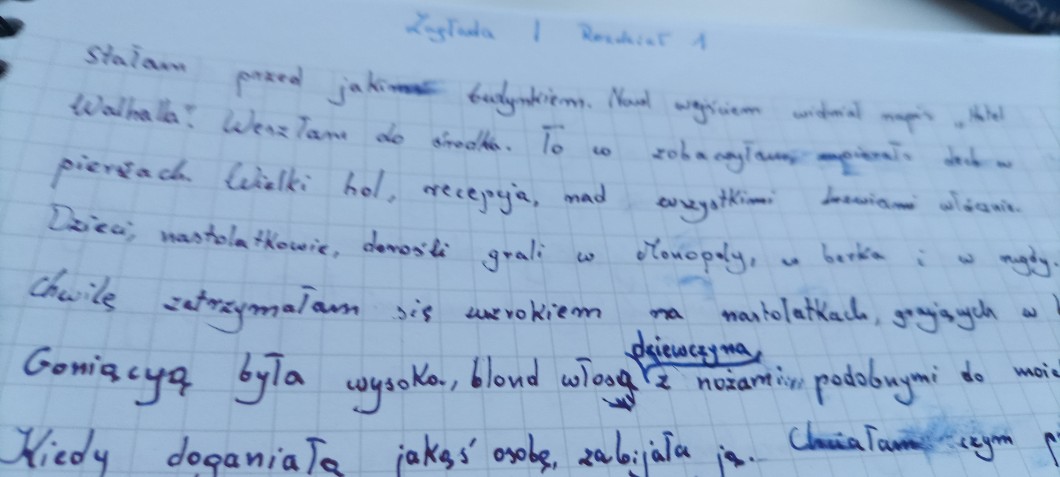 Zagłada | Rozdział 1
Stałam przed jakimś budynkiem. Nad wejściem widniał napis „Hotel
Walhalla". Weszłam do środka. To co zobaczyłam, dech w
pierśach. Wielki hol, recepcja, nad wszystkimi drzwiami włócznie.
Dzieci, nastolatkowie, dorośli grali w Monopoly, w berka i w rugby.
Chwilę zatrzymałam się wzrokiem na nastolatkach, grających w
dziewczyna,
Goniącyą była wysoka, blond włosą z nożami, podobnymi do moic
Kiedy doganiała jakąś osobę, zabijała ją. Chciałam czym p